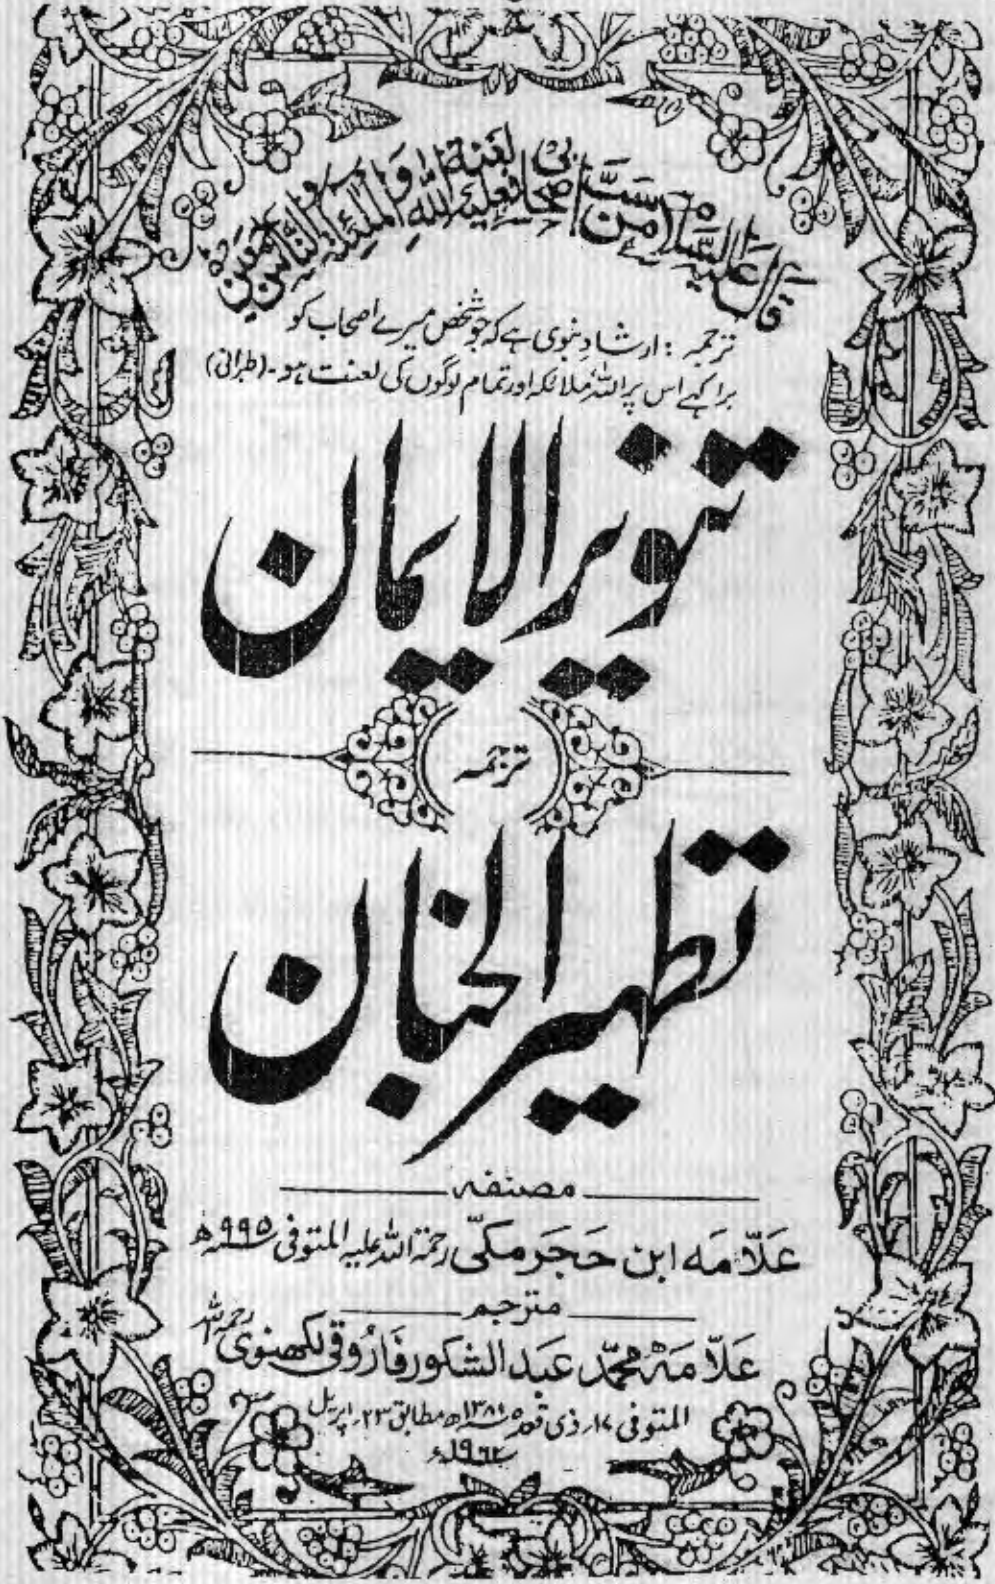 قال علیہ السلام من سب اصحابی فعلیہ لعنۃ اللہ والملئکۃ والناس اجمعین
ترجمہ : ارشادِ نبوی ہے کہ جو شخص میرے اصحاب کو
برا کہے اس پر اللہ، ملائکہ اور تمام لوگوں کی لعنت ہو۔ (طبرانی)
تنویر الایمان
ترجمہ
تطہیر الجنان
مصنفہ
علّامہ ابن حجر مکّی رحمۃ اللہ علیہ المتوفی ۹۹۵ھ
مترجم
علّامہ محمّد عبدالشکور فاروقی لکھنوی رحمہ اللہ
المتوفی ۱۷ ذی قعدہ ۱۳۸۱ھ مطابق ۲۳ اپریل
۱۹۶۲ء